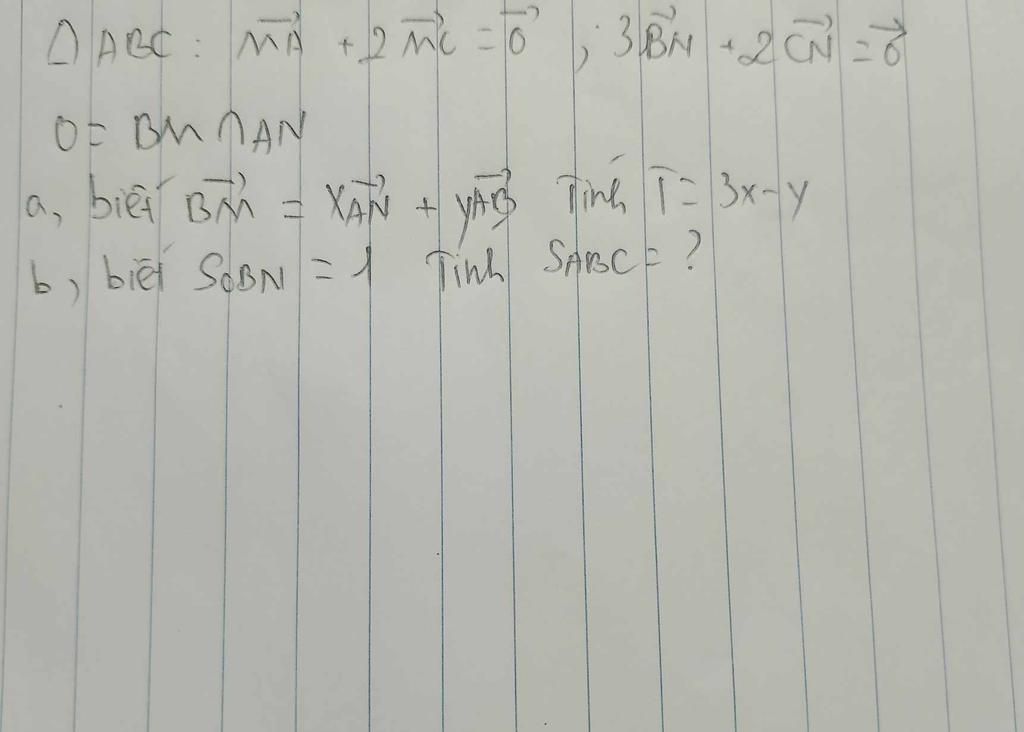 Δ ABC : \vec{MA} + 2\vec{MC} = \vec{0} ; 3\vec{BN} + 2\vec{CN} = \vec{0}
O = BM ∩ AN
a, biết \vec{BM} = x\vec{AN} + y\vec{AB} Tính T = 3x - y
b, biết S_{OBN} = 1 Tính S_{ABC} = ?